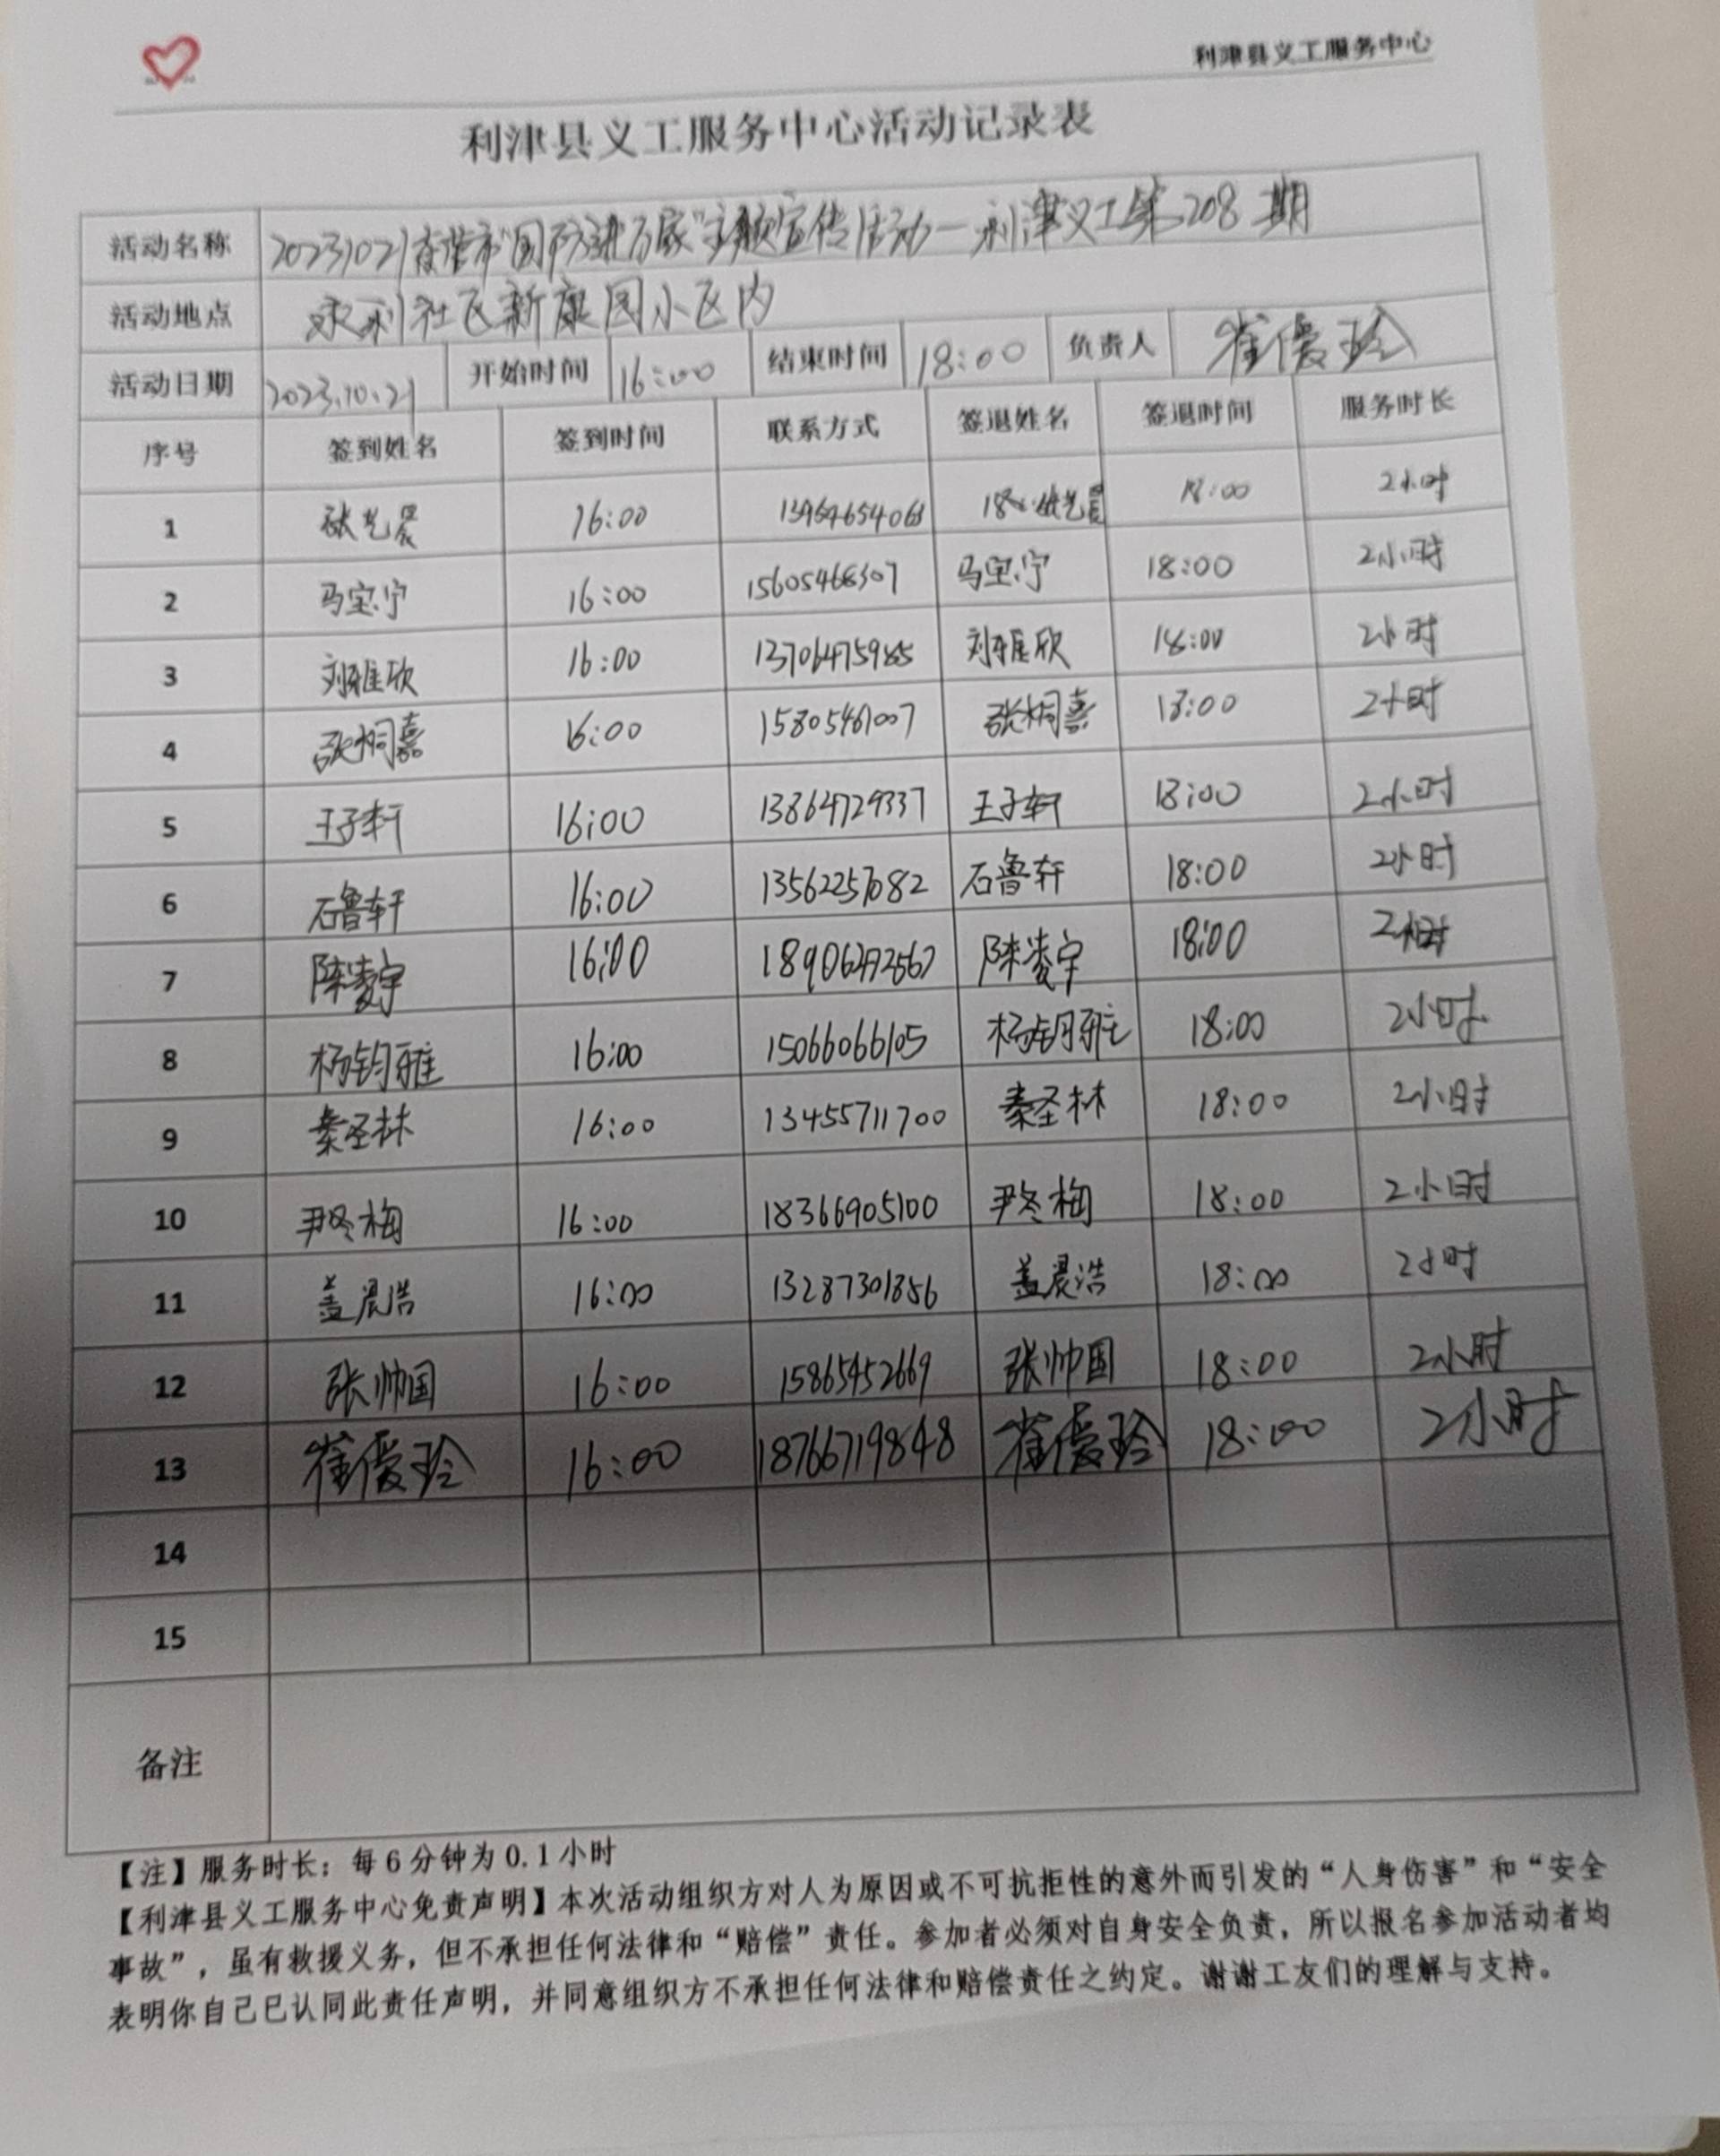 利津县义工服务中心
利津县义工服务中心活动记录表
活动名称 20231021东营市"国防进万家"主题宣传活动—利津义工第208期
活动地点 永利社区新康园小区内
活动日期 2023.10.21 开始时间 16:00 结束时间 18:00 负责人 崔爱玲
序号 签到姓名 签到时间 联系方式 签退姓名 签退时间 服务时长
1 张艺晨 16:00 13964654063 张艺晨 18:00 2小时
2 马宝宁 16:00 15605468307 马宝宁 18:00 2小时
3 刘雅欣 16:00 13706475985 刘雅欣 18:00 2小时
4 张桐嘉 16:00 15805461007 张桐嘉 18:00 2小时
5 王子轩 16:00 13864729337 王子轩 18:00 2小时
6 石鲁轩 16:00 13562257082 石鲁轩 18:00 2小时
7 陈凌宇 16:00 陈凌宇 18:00 2小时
8 杨钧雅 16:00 15066066105 杨钧雅 18:00 2小时
9 秦圣林 16:00 13455711700 秦圣林 18:00 2小时
10 尹冬梅 16:00 18366905100 尹冬梅 18:00 2小时
11 盖晨浩 16:00 13287301856 盖晨浩 18:00 2小时
12 张帅国 16:00 15865452669 张帅国 18:00 2小时
13 崔爱玲 16:00 18766719848 崔爱玲 18:00 2小时
14
15
备注
【注】服务时长：每6分钟为0.1小时
【利津县义工服务中心免责声明】本次活动组织方对人为原因或不可抗拒性的意外而引发的“人身伤害”和“安全
事故”，虽有救援义务，但不承担任何法律和“赔偿”责任。参加者必须对自身安全负责，所以报名参加活动者均
表明你自己已认同此责任声明，并同意组织方不承担任何法律和赔偿责任之约定。谢谢工友们的理解与支持。